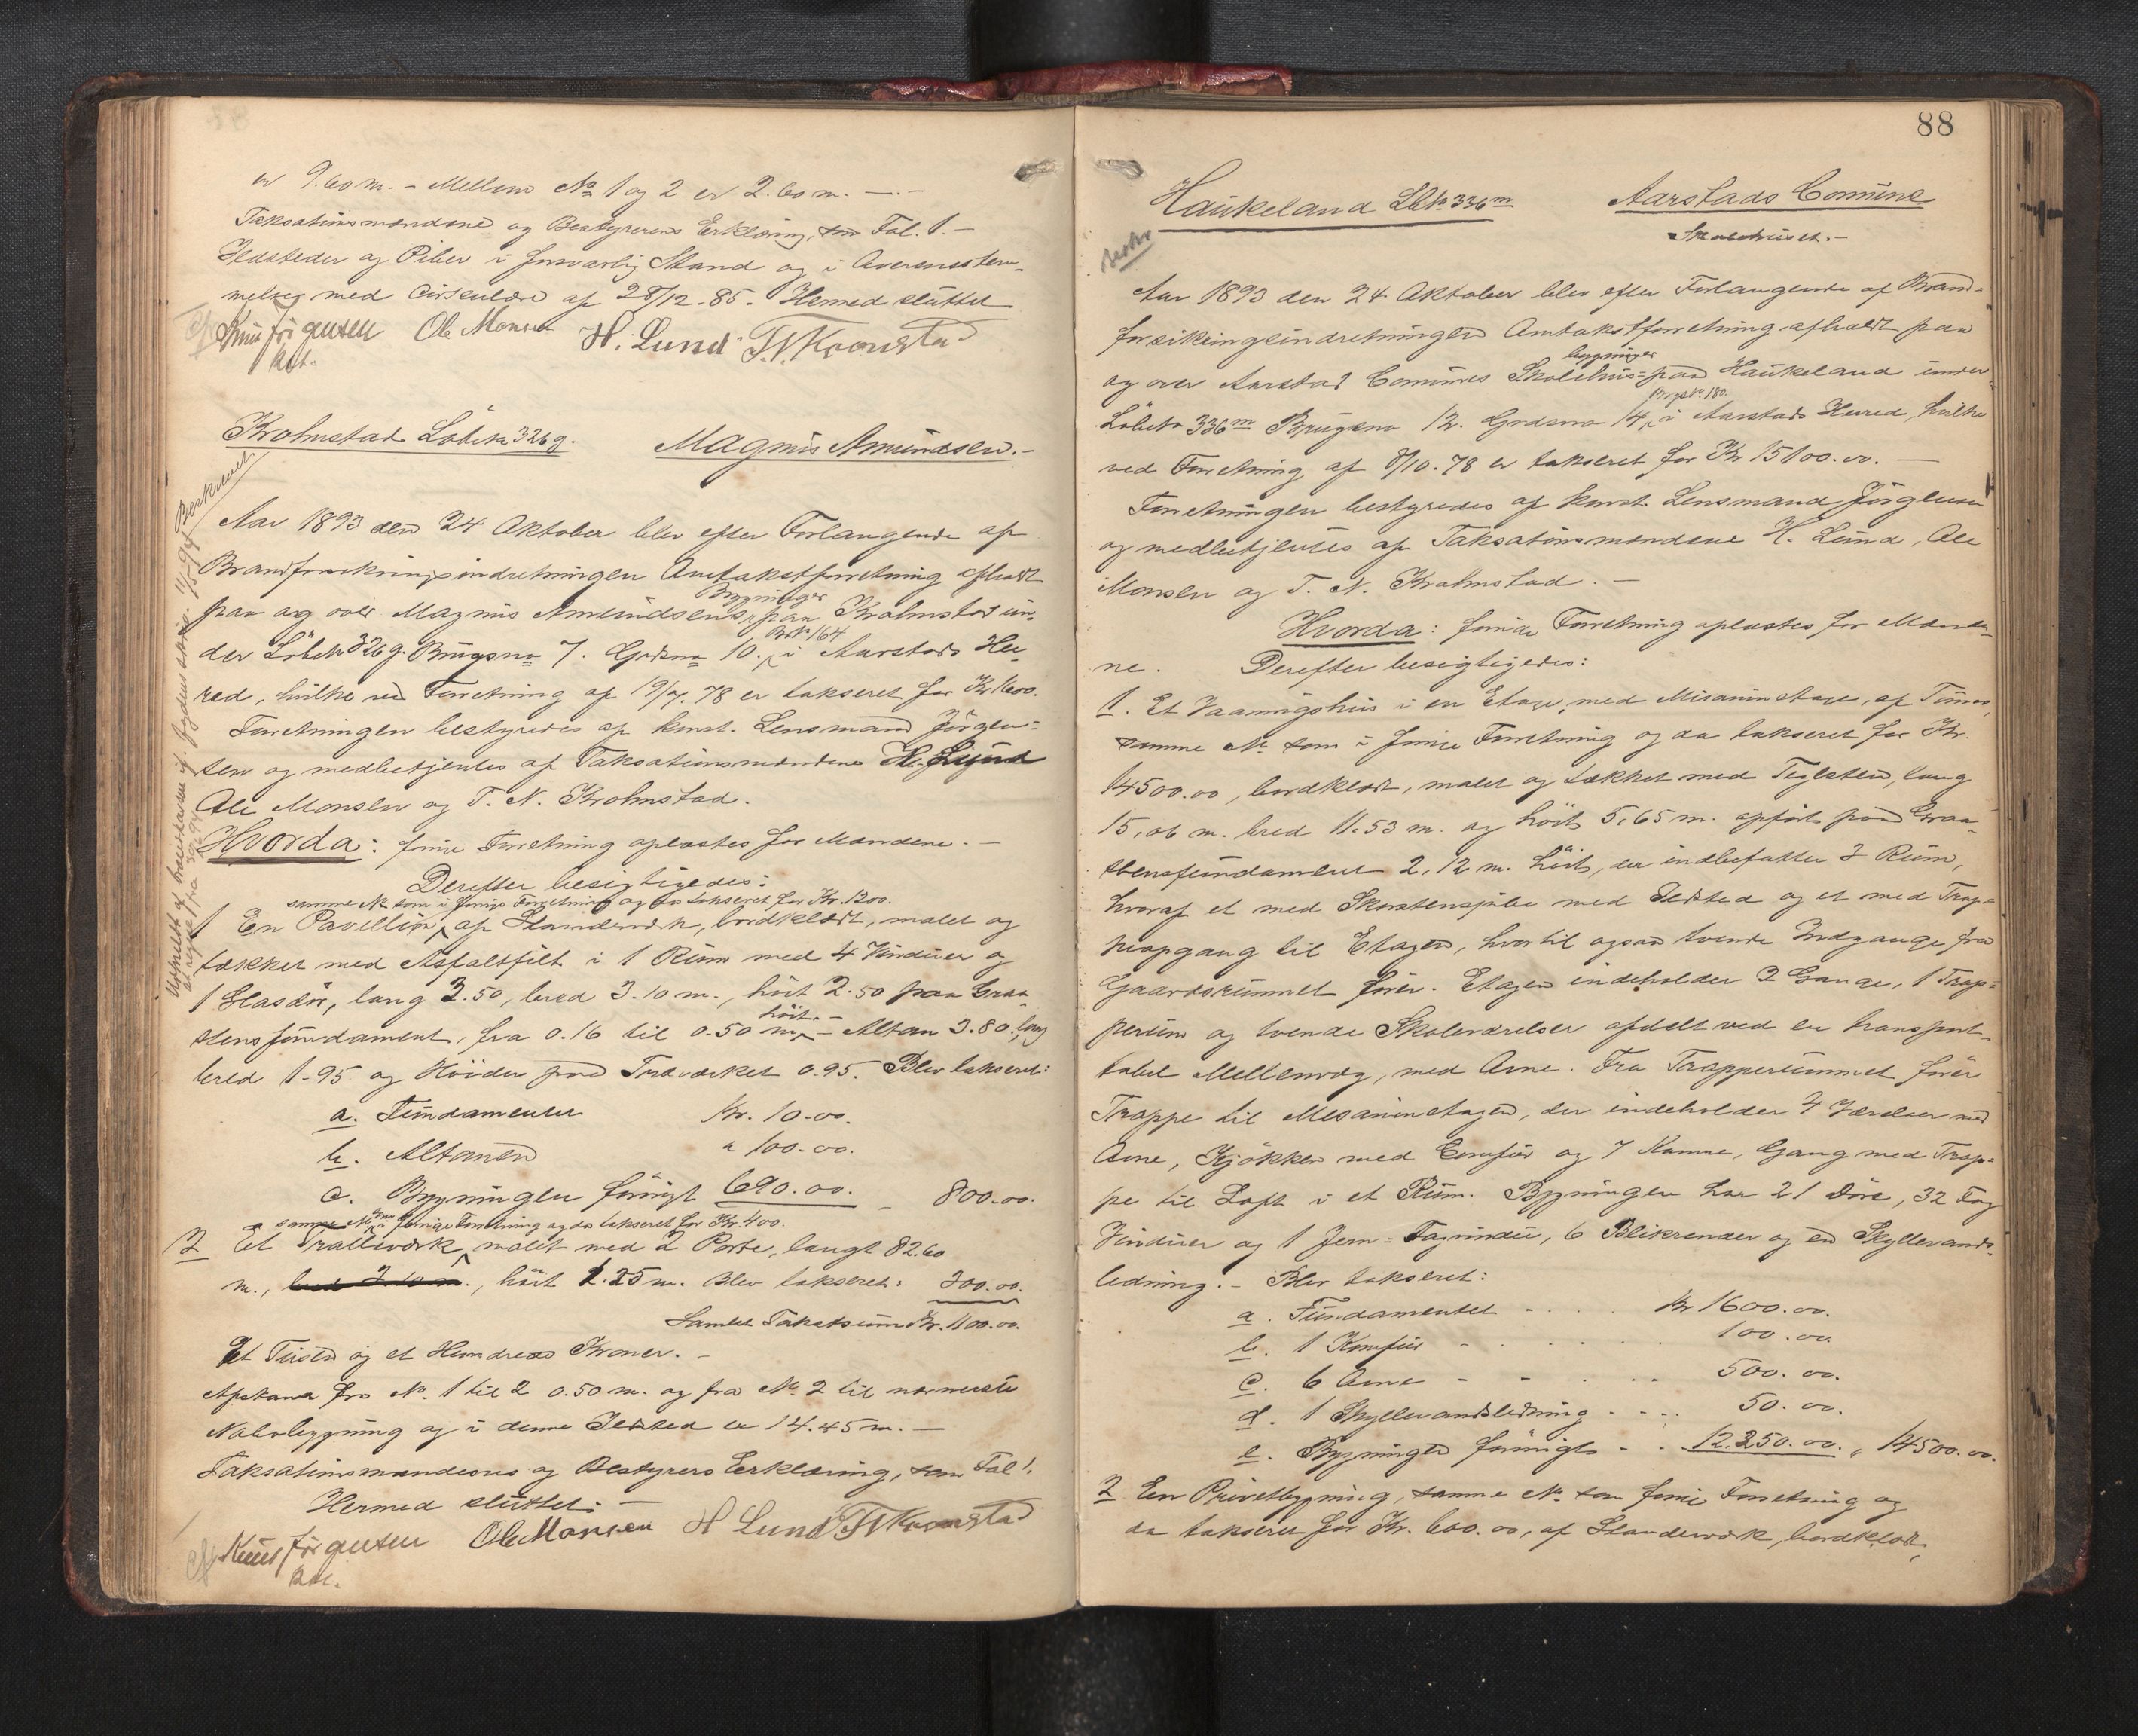 er 9.60 m. – Mellem No 1 og 2 er 2.60 m. —.–
Taksationsmændene og Bestyrerens Erklæring, som Fol. 1. –
Ildsteder og Piber i forsvarlig Stand og i Overensstem-
melse med Cirkulære af 28/12-85. Hermed sluttet
Knut Jörgensen Ole Monsen H. Lund T. N. Kronstad
kst.
Krohnstad Löbeno 326g. Magnus Amundsen.–
Beskrevet
Aar 1893 den 24 Oktober blev efter Forlangende af
Brandforsikringsindretningen Omtakstforretning afholdt
Bygninger
paa og over Magnus Amundsens paa Krohnstad un-
BrNo 164
der Löbeno 326g. Brugsno 7. Gardsno 10. i Aarstads Her-
red, hvilke ved Forretning af 19/7.78 er takseret for Kr. 1600.
Forretningen bestyredes af konst. Lensmand Jörgen-
sen og medbetjentes af Taksationsmændene H. Lund
Ole Monsen og T. N. Krohnstad.
Hvorda: forrige Forretning oplæstes for Mændene. –
Derefter besigtigedes:
samme No som i forrige Forretning og da takseret for Kr. 1200.
1 En Pavillion, af Standerværk, bordklædt, malet og
tækket med Asfaltfilt i 1 Rum med 4 Vinduer og
1 Glasdör, lang 3.50, bred 3.10 m., höit 2.50 paa Graa-
höit. –
stensfundament, fra 0.16 til 0.50 m. – Altan 3.80 lang
bred 1-95 og Höiden paa Træværket 0.95. Blev takseret:
a. Fundamentet Kr. 10.00.
b. Altanen " 100.00.
c. Bygningen forövrigt 690.00. – 800.00.
samme No som i forrige Forretning og da takseret for Kr. 400.
2 Et Traliværk, malet med 2 Porte, langt 82.60
m., höit 1.25 m. Blev takseret: 300.00.
Samlet Takstsum Kr. 1100.00.
Et Tusen og et Hundrede Kroner. –
Afstand fra No. 1 til 2 0.50 m. og fra No 2 til nærmeste
Nabobygning og i denne Ildsted er 14.45 m. —
Taksationsmændenes og Bestyrers Erklæring, som Fol 1.
Hermed sluttet. –
Knut Jörgensen Ole Monsen H Lund T. N. Kronstad
kst.
88
Haukeland Lbno 336m Aarstads Comune
Skolehuset. –
Aar 1893 den 24. Oktober blev efter Forlangende af Brand-
forsikringsindretningen Omtakstforretning afholdt paa
bygninger
og over Aarstad Comunes Skolehus- paa Haukeland under
Brgstno. 180.
Löbeno 336m Brugsno 12. Gardsno 14, i Aarstads Herred, hvilke
ved Forretning af 8/10.78 er takseret for Kr 15100.00. —
Forretningen bestyredes af konst. Lensmand Jörgensen
og medbetjentes af Taksationsmændene H. Lund, Ole
Monsen og T. N. Krohnstad. –
Hvorda: forrige Forretning oplæstes for Mænde-
ne. Derefter besigtigedes:
1. Et Vaaningshus i en Etage, med Misaninetage, af Tömmer,
samme No som i forrige Forretning og da takseret for Kr.
14500.00, bordklædt, malet og tækket med Teglsten, lang
15,06 m. bred 11.53 m. og höit 5,65 m. opfört paa Graa-
stensfundament 2,12 m. höit, er indbefatter 3 Rum,
hvoraf et med Skorstenspibe med Ildsted og et med Trap-
peopgang til Etagen, hvortil ogsaa tvende Indgange fra
Gaardsrummet förer. Etagen indeholder 2 Gange, 1 Trap-
perum og tvende Skoleværelser afdelt ved en transpor-
tabel Mellemvæg, med Ovne. Fra Trapperummet förer
Trappe til Mesaninetagen, der indeholder 4 Værelser med
Ovne, Kjökken med Comfur og 7 Kamre, Gang med Trap-
pe til Loft i et Rum. Bygningen har 21 Döre, 32 Fag
Vinduer og 1 Jern-Tagvindu, 6 Blikrender og en Skyllevands-
ledning. – Blev takseret:
a. Fundamentet Kr 1600.00.
b. 1 Komfur 100.00.
c. 6 Ovne 500.00.
d. 1 Skyllevandsledning 50.00.
e. Bygningen forövrigt 12.250.00. " 14500.00.
2 En Privetbygning, samme No. som forrige Forretning og
da takseret for Kr. 600.00, af Standerværk, bordklædt,